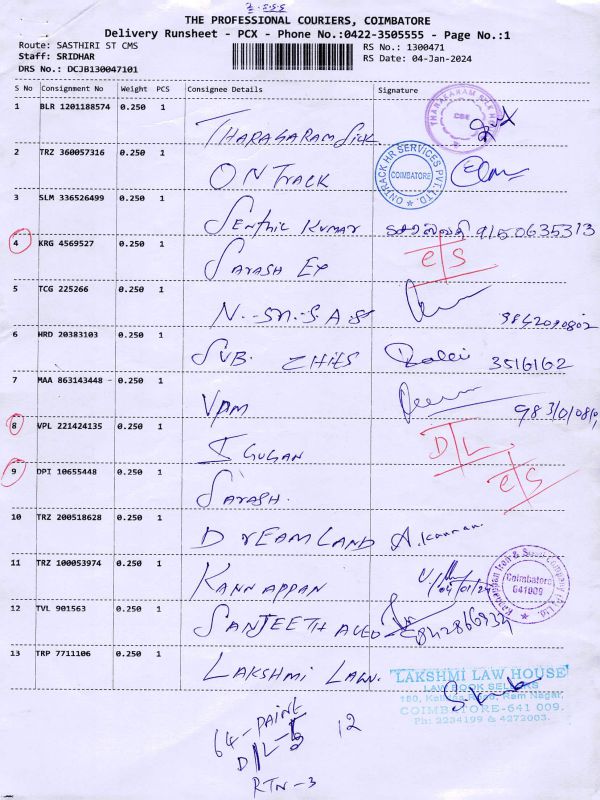 THE PROFESSIONAL COURIERS, COIMBATORE
Delivery Runsheet - PCX - Phone No.:0422-3505555 - Page No.:1
Route: SASTHIRI ST CMS RS No.: 1300471
Staff: SRIDHAR RS Date: 04-Jan-2024
DRS No.: DCJB130047101
S No Consignment No Weight PCS Consignee Details Signature
1 BLR 1201188574 0.250 1
THARAKARAM SILK
2 TRZ 360057316 0.250 1
ON TRACK
ONTRACK HR SERVICES PVT. LTD.
COIMBATORE
3 SLM 336526499 0.250 1
SENTHIL KUMAR 9150635313
4 KRG 4569527 0.250 1
e/s
5 TCG 225266 0.250 1
9842090802
6 HRD 20383103 0.250 1
SUB. 3516162
7 MAA 863143448 - 0.250 1
VPM
8 VPL 221424135 0.250 1
D/L
9 DPI 10655448 0.250 1
e/s
10 TRZ 200518628 0.250 1
DREAMLAND A. Kannan.
11 TRZ 100053974 0.250 1
KANNAPPAN 04/01/24
Kannappan Iron & Steel Company (P) Ltd
Coimbatore
641009
12 TVL 901563 0.250 1
SANJEETH
13 TRP 7711106 0.250 1
LAKSHMI LAW.
LAKSHMI LAW HOUSE
LAW BOOK SELLERS
Ram Nagar,
COIMBATORE-641 009.
Ph: 2234199 & 4272003.
12
RTN-3